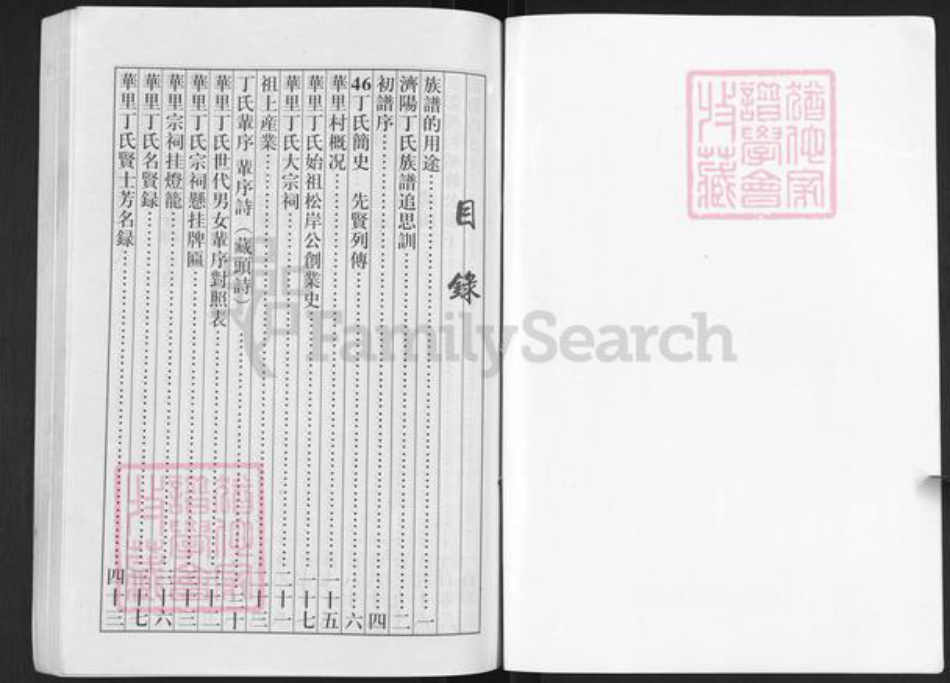 目錄
族譜的用途……一
濟陽丁氏族譜追思訓……二
初譜序……四
46丁氏簡史 先賢列傳……六
華里村概况……一十五
華里丁氏始祖松岸公創業史……一十七
華里丁氏大宗祠……二十一
祖上産業……二十三
丁氏輩序 輩序詩（藏頭詩）……三十
華里丁氏世代男女輩序對照表
華里丁氏宗祠懸挂牌匾
華里宗祠挂燈籠
華里丁氏名賢録
華里丁氏賢士芳名録……四十三
FamilySearch